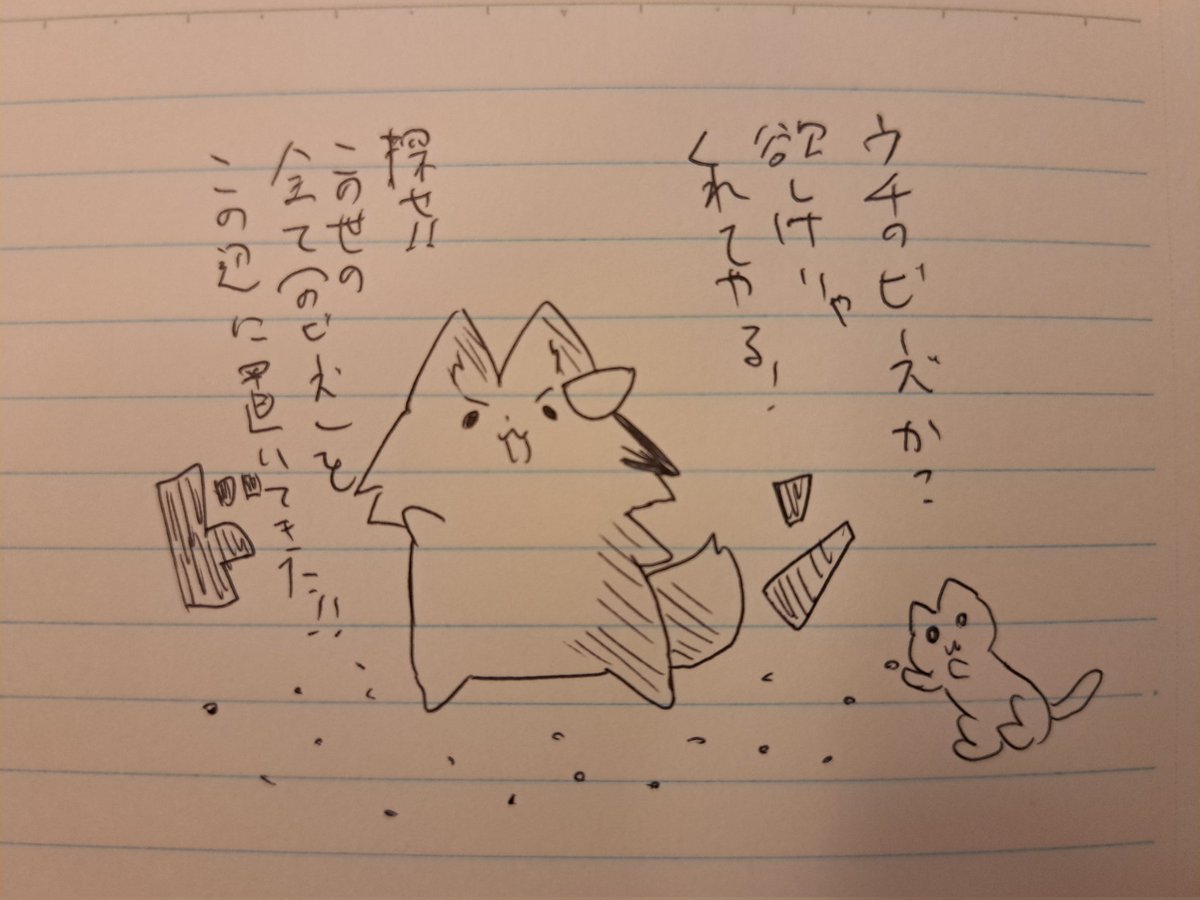 ウチのビーズか?
欲しけりゃ
くれてやる!
探せ!!
この世の
全て(の
この
に置いてきた!!
ン
ド